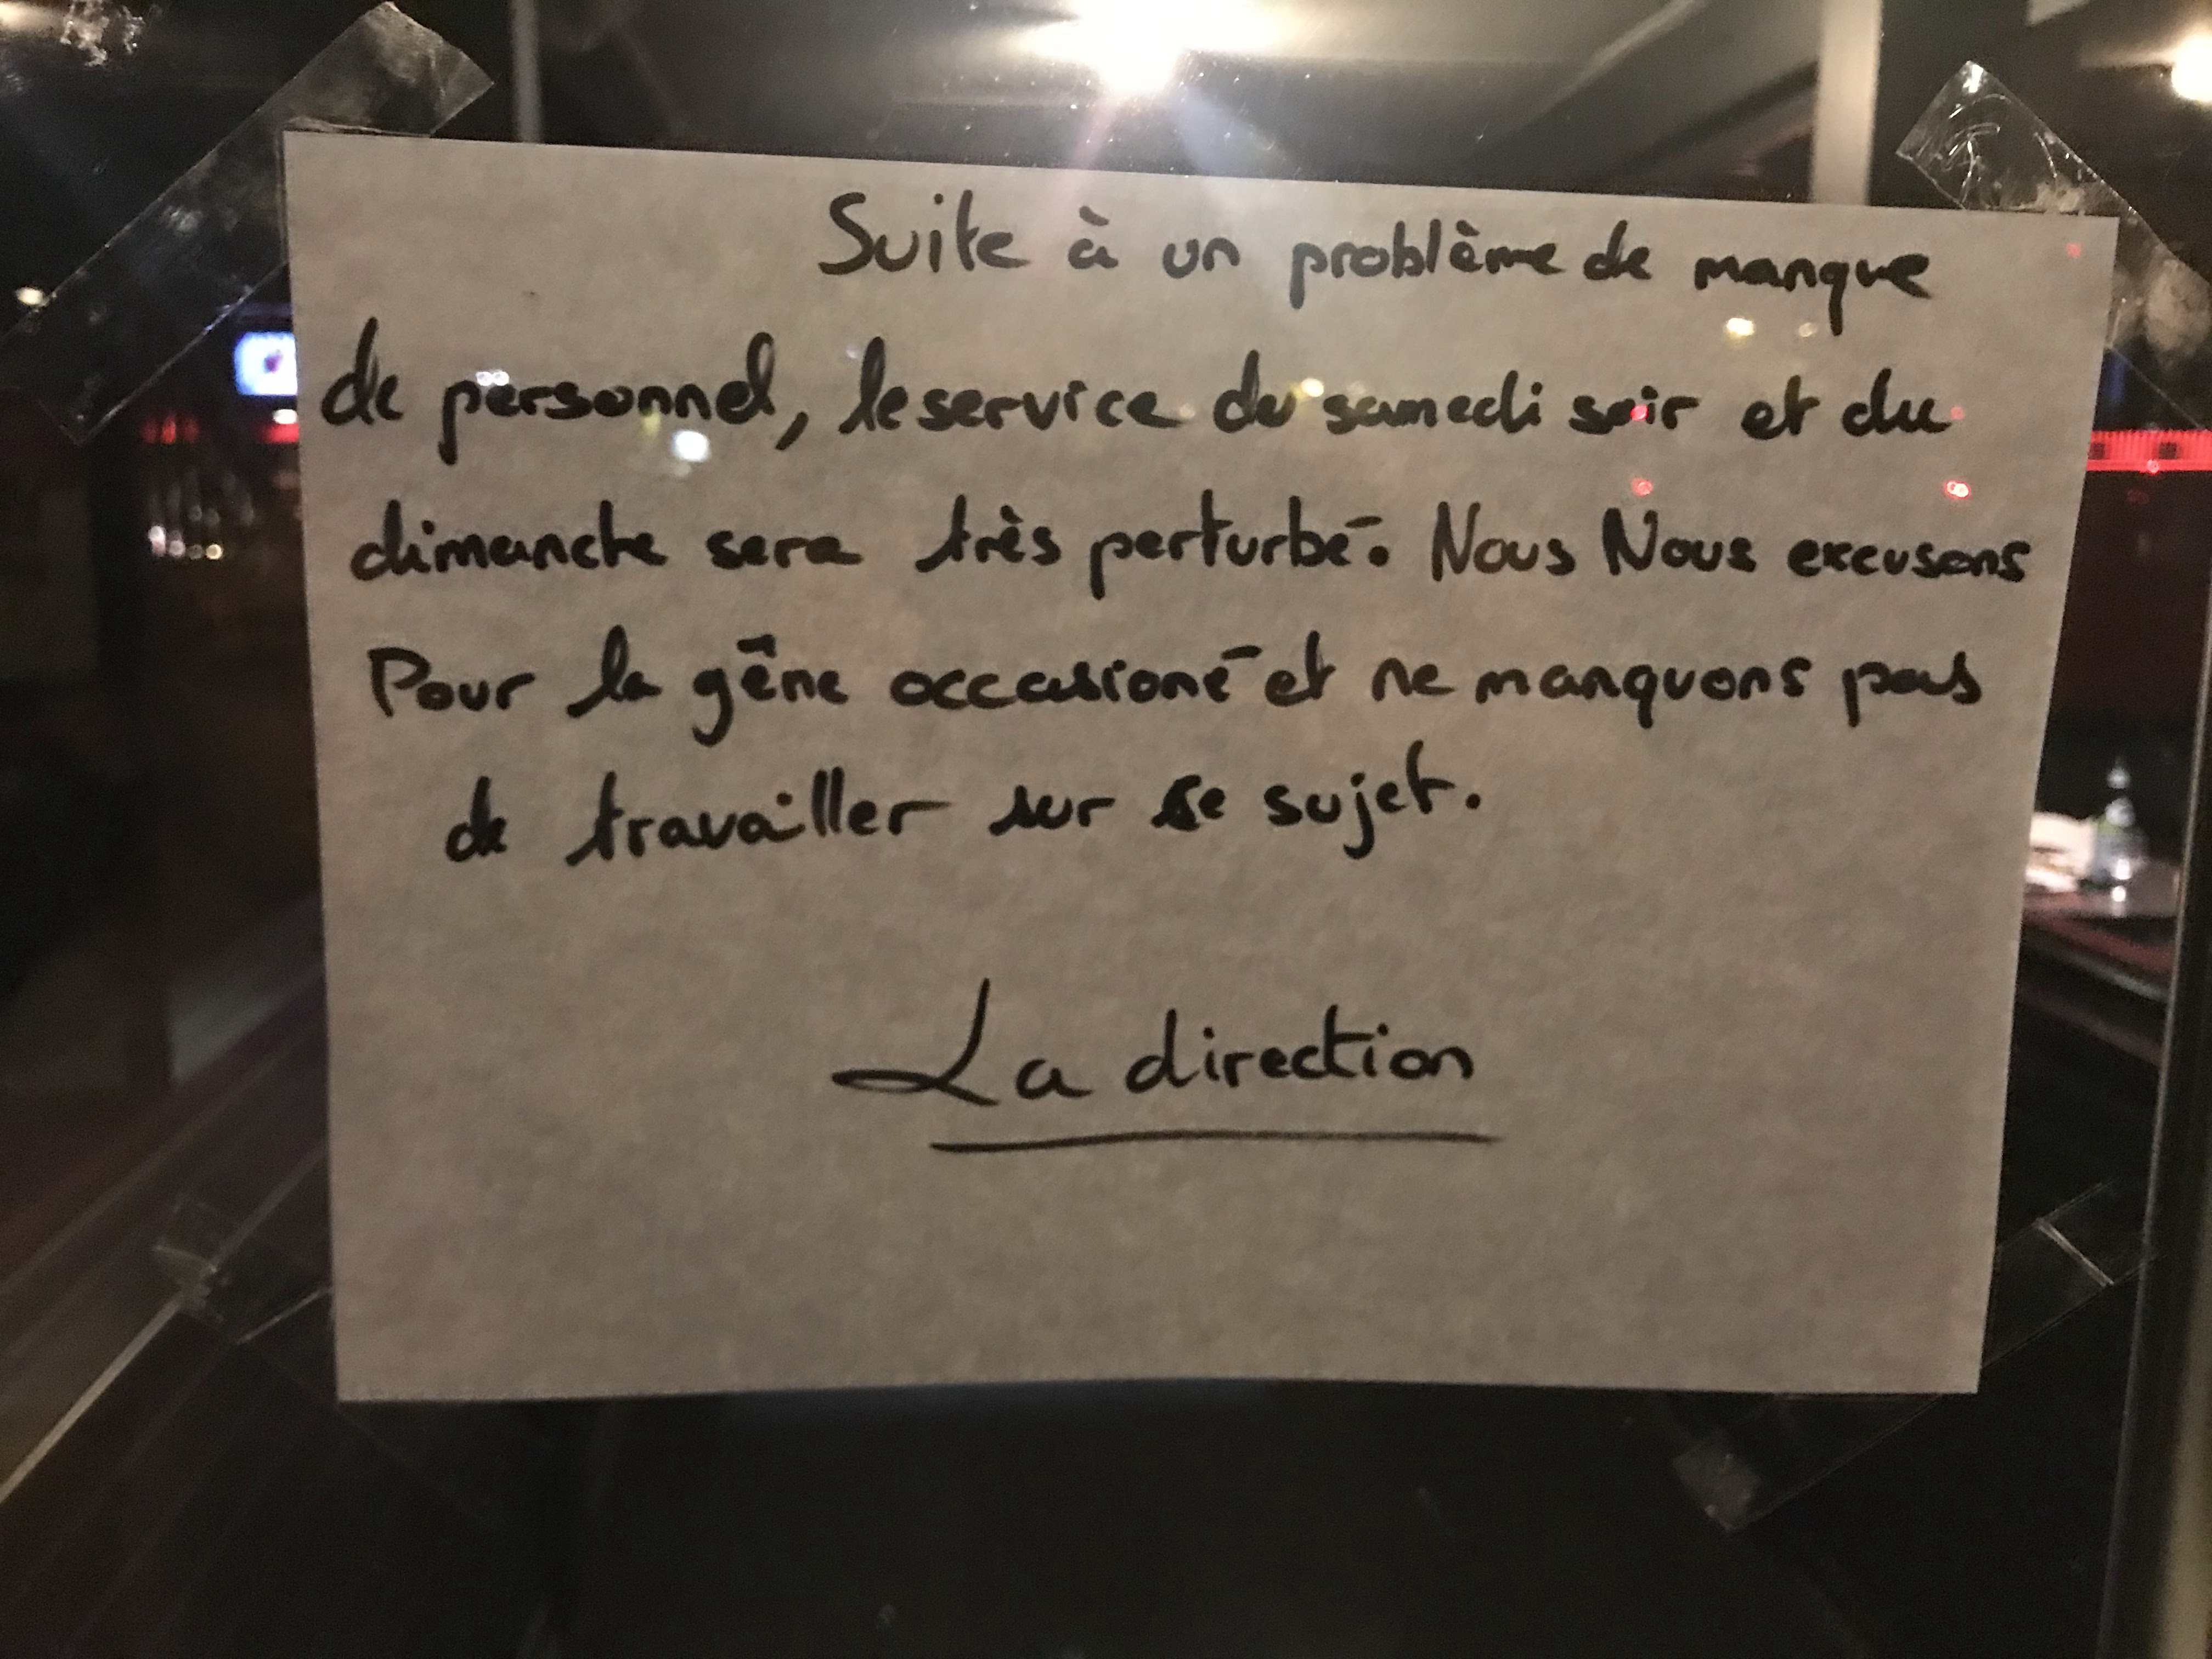 Suite à un problème de manque
de personnel, le service du samedi soir et du
dimanche sera très perturbé. Nous Nous excusons
Pour la gêne occasioné et ne manquons pas
de travailler sur se sujet.
La direction